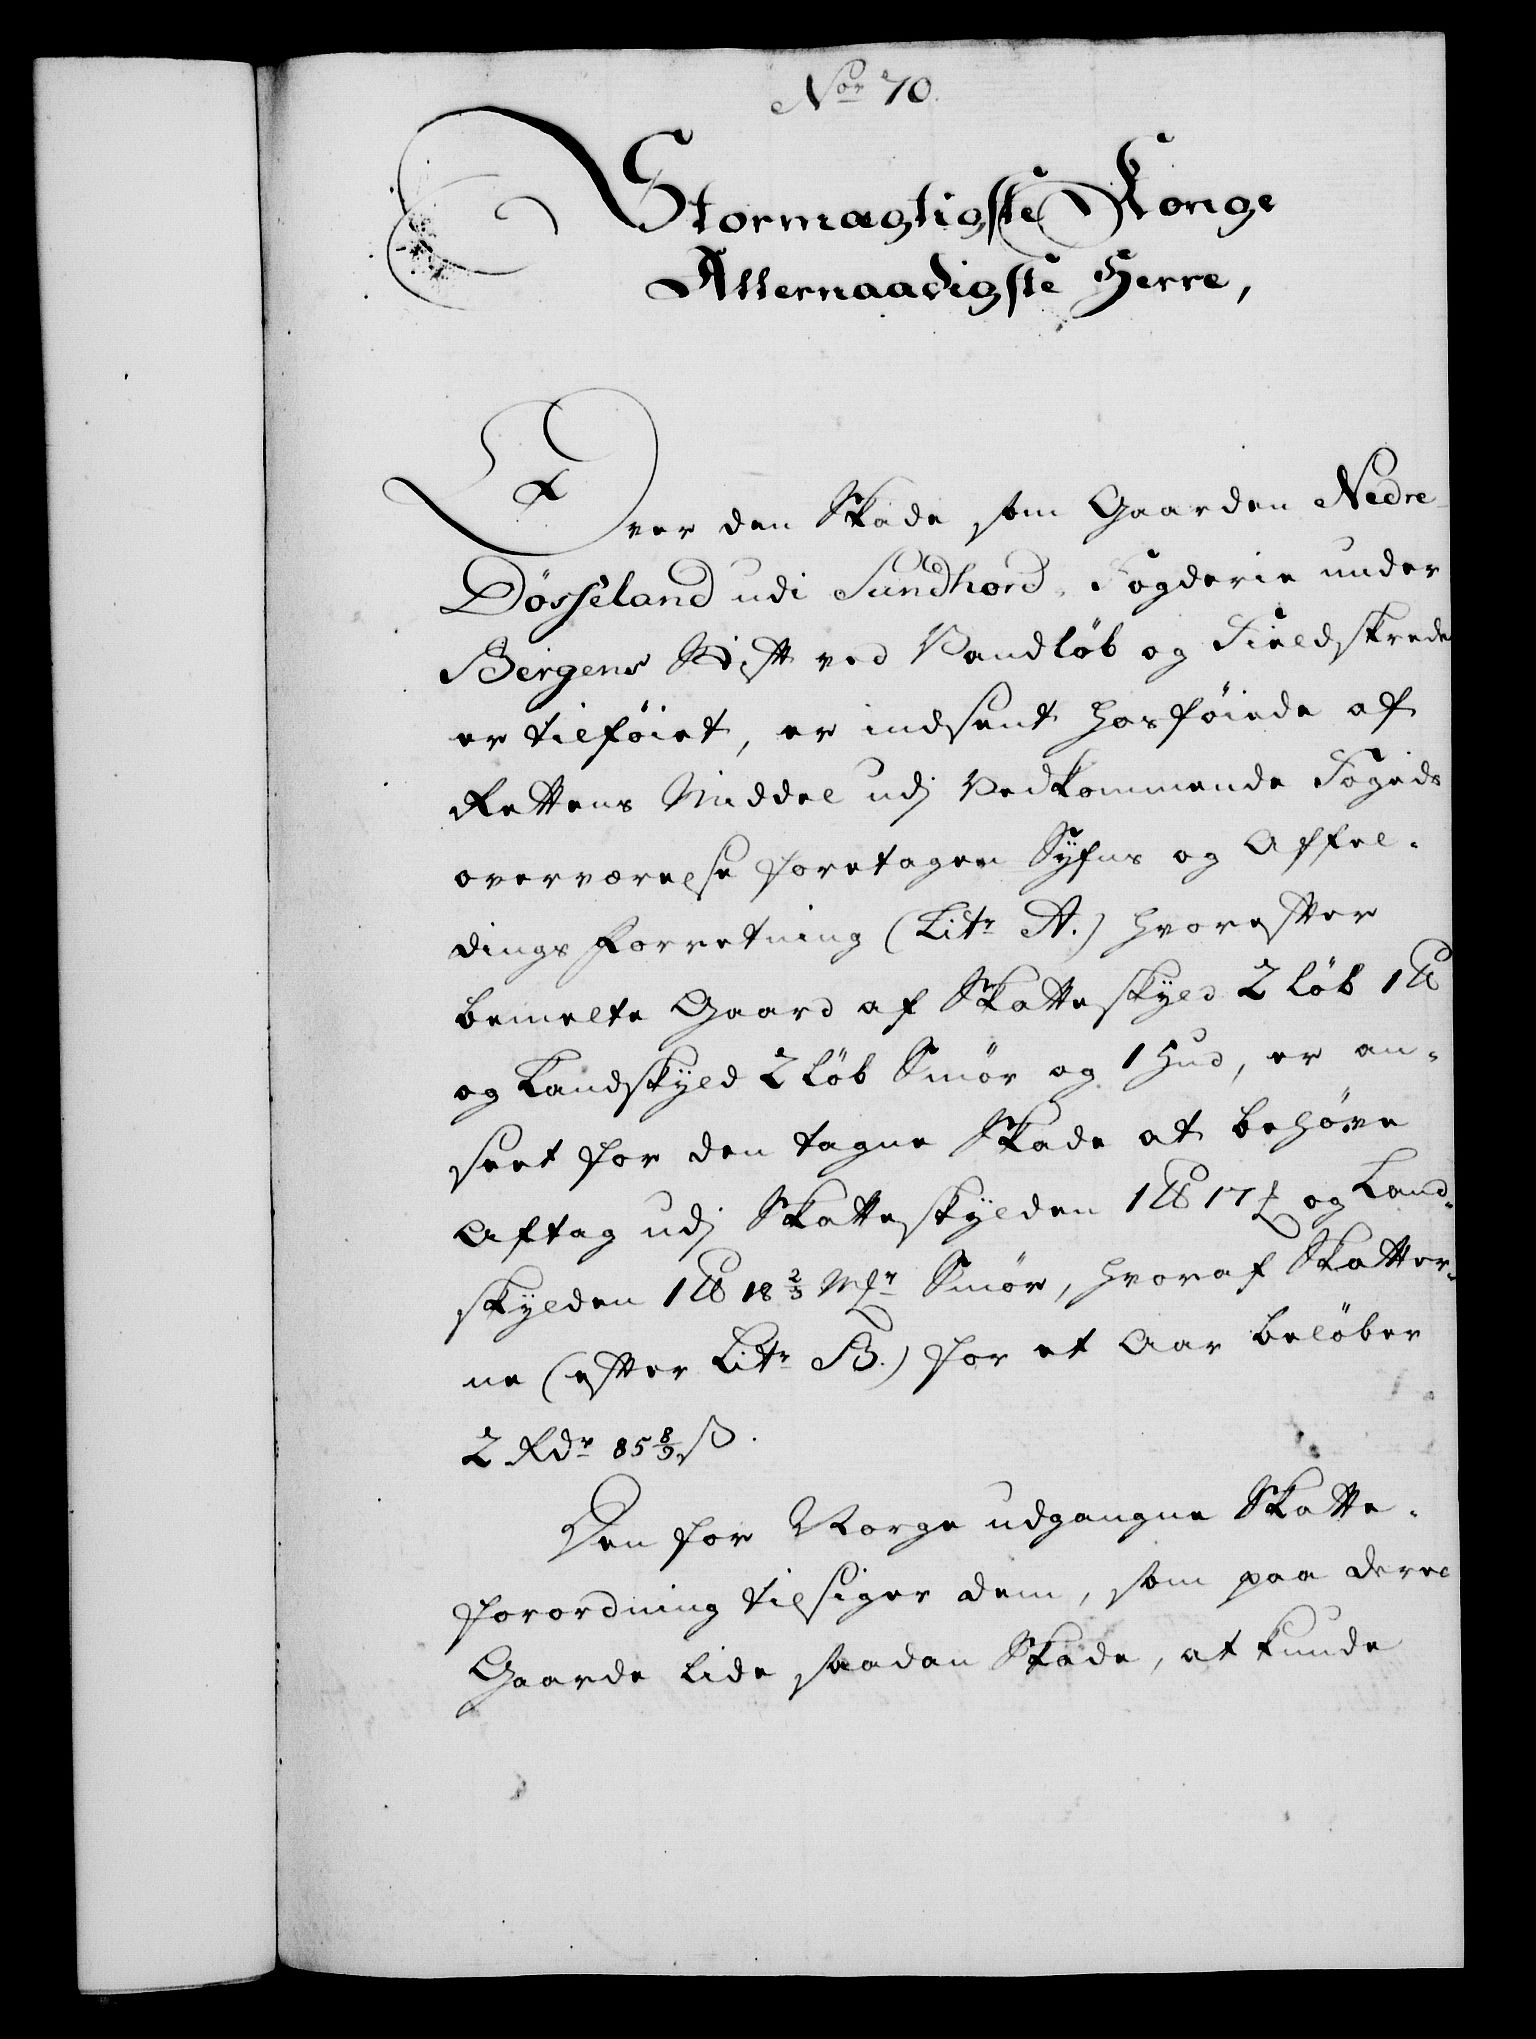 Nor 70.
Stormægtigste Konge
Allernaadigste Herre,
Over den Skade som Gaarden Nedre-
Dösseland udi Sundhord. Fogderie under
Bergens Stift ved Vandløb og Fieldskrede
er tilföiet, er indsent hosföiede af
Rettens Middel udj Vedkommende Fogeds
overværelse foretagen Syns og Affel-
dings Forretning (Litr A.) hvorefter
bemelte Gaard af Skatteskyld 2 Löb 1 ℔
og Landskyld 2 Löb Smör og 1 Hud, er an-
seet for den tagne Skade at behöve
Aftag udj Skatteskylden 1 ℔ 17 ℔ og Land-
skylden 1 ℔ 18 2/3 Mkr Smör, hvoraf Skatter-
ne (efter Litr B.) for et Aar belöber
2 Rdr 85 8/9 ß.
Den for Norge udgangne Skatte-
forordning tilsiger dem, som paa deres
Gaarde lide saadan Skade, at kunde